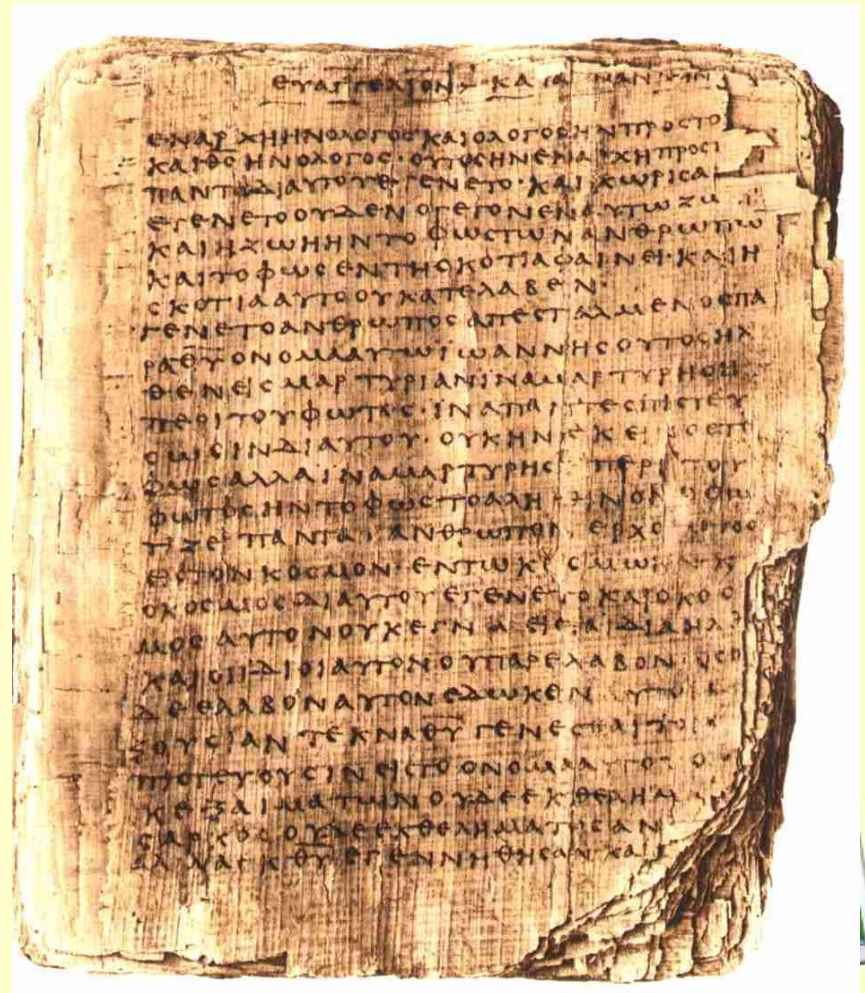 ΕΥΑΓΓΕΛΙΟΝ ΚΑΤΑ
ΕΝΑΡΧΗΗΝΟΛΟΓΟΣΚΑΙΟΛΟΓΟΣΗΝΠΡΟΣΤΟ
ΚΑΙΘΣΗΝΟΛΟΓΟΣ·ΟΥΤΟΣΗΝΕΝΑΡΧΗΠΡΟΣΤ
ΠΑΝΤΑΔΙΑΥΤΟΥΕΓΕΝΕΤΟ·ΚΑΙΧΩΡΙΣΑ
ΕΓΕΝΕΤΟΟΥΔΕΝΟΓΕΓΟΝΕΝΑΥΤΩΖΩ
ΚΑΙΗΖΩΗΗΝΤΟΦΩΣΤΩΝΑΝΘΡΩΠΩ
ΚΑΙΤΟΦΩΣΕΝΤΗΣΚΟΤΙΑΦΑΙΝΕΙ·ΚΑΙΗ
ΣΚΟΤΙΑΑΥΤΟΟΥΚΑΤΕΛΑΒΕΝ·
ΓΕΝΕΤΟΑΝΘΡΩΠΟΣΑΠΕΣΤΑΛΜΕΝΟΣΠΑ
ΡΑΘΥΟΝΟΜΑΑΥΤΩΙΩΑΝΝΗΣΟΥΤΟΣΗΛ
ΘΕΝΕΙΣΜΑΡΤΥΡΙΑΝΙΝΑΜΑΡΤΥΡΗΣΗ
ΠΕΡΙΤΟΥΦΩΤΟΣ·ΙΝΑΠΑΝΤΕΣΠΙΣΤΕΥ
ΣΩΣΙΝΔΙΑΥΤΟΥ·ΟΥΚΗΝΕΚΕΙΝΟΣΤΟ
ΦΩΣΑΛΛΑΙΝΑΜΑΡΤΥΡΗΣΗΠΕΡΙΤΟΥ
ΦΩΤΟΣΗΝΤΟΦΩΣΤΟΑΛΗΘΙΝΟΝΟΦΩ
ΤΙΖΕΙΠΑΝΤΑΑΝΘΡΩΠΟΝΕΡΧΟΜΕΝΟΝ
ΕΙΣΤΟΝΚΟΣΜΟΝ·ΕΝΤΩΚΟΣΜΩΗΝΚ
ΟΚΟΣΜΟΣΔΙΑΥΤΟΥΕΓΕΝΕΤΟΚΑΙΟΚΟΣ
ΜΟΣΑΥΤΟΝΟΥΚΕΓΝΩΕΙΣΤΑΙΔΙΑΗΛΘ
ΚΑΙΟΙΙΔΙΟΙΑΥΤΟΝΟΥΠΑΡΕΛΑΒΟΝ·ΟΣΟ
ΔΕΕΛΑΒΟΝΑΥΤΟΝΕΔΩΚΕΝΑΥΤΟΙΣ
ΞΟΥΣΙΑΝΤΕΚΝΑΘΥΓΕΝΕΣΘΑΙΤΟΙΣ
ΠΙΣΤΕΥΟΥΣΙΝΕΙΣΤΟΟΝΟΜΑΑΥΤΟΥΟ
ΚΕΞΑΙΜΑΤΩΝΟΥΔΕΕΚΘΕΛΗΜ
ΣΑΡΚΟΣΟΥΔΕΕΚΘΕΛΗΜΑΤΟΣΑΝ
ΑΛΛΑΕΚΘΥΕΓΕΝΝΗΘΗΣΑΝΚΑΙ